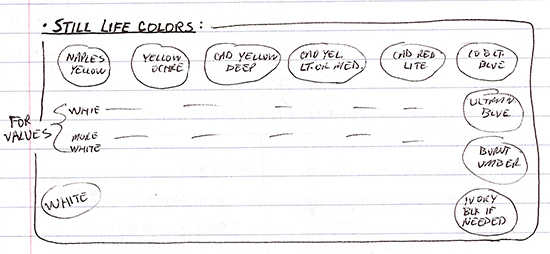 • STILL LIFE COLORS:
NAPLES YELLOW
YELLOW OCHRE
CAD YELLOW DEEP
CAD YEL LT. OR MED.
CAD RED LITE
COBLT. BLUE
FOR VALUES
WHITE
MORE WHITE
ULTRAM BLUE
BURNT UMBER
WHITE
IVORY BLK IF NEEDED